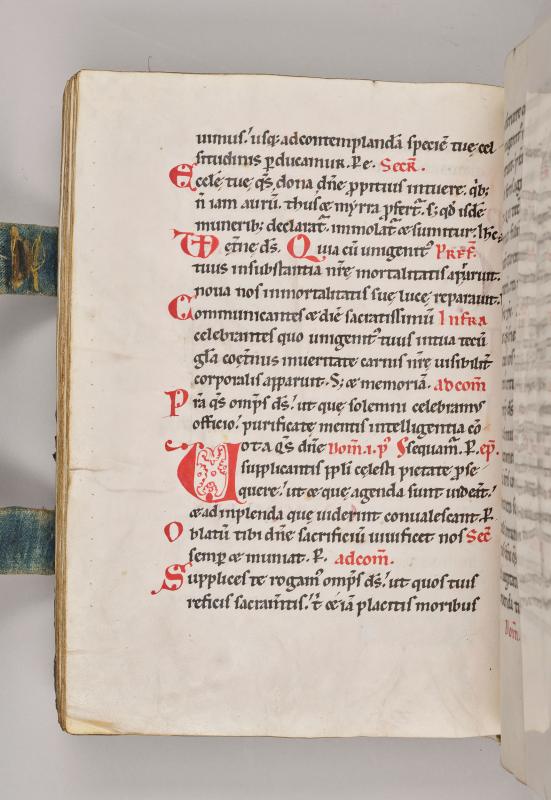 uimus.' usq; ad contemplandā speciē tuę cel
situdinis ꝑducamur. P e. Secr̄.
Ęcclę tuę q̄s dona dn̄e ꝓpitius intuere. qb;
n̄ iam aurū. thus & myrra ꝓfert᷑. s; qđ isdē
munerib; declarat᷑. immolat᷑ & sumitur. Ihc̄
Et̄nę ds̄. Quia cū unigenit᷒ Pref̄.
tuus in substantia nr̄ę mortalitatis apparuit.
noua nos inmortalitatis suę lucę reparauit.
Communicantes & diē sacratissimū Infra
celebrantes quo unigenit᷒ tuus in tua tecū
gl̄a coęt̄nus in ueritate carnis nr̄ę uisibilit̄
corporalis apparuit. S; & memoriā. ad com̄
Pr̄a q̄s omp̄s ds̄.' ut quę solemni celebram᷒
officio.' purificatę mentis intelligentia cō
Uota q̄s dn̄e Dom̄. i. p᷒ sequam᷑. P. ep̄.
supplicantis pp̄li cęlesti pietate ꝓse
quere.' ut & quę agenda sunt uideāt.'
& ad inplenda quę uiderint conualescant. P.
Oblatū tibi dn̄e sacrificiū uiuificet nos Sec̄
semp & muniat. P. ad com̄.
Supplices te rogam᷒ omp̄s ds̄.' ut quos tuis
reficis sacram̄tis.' t̄ &iā placitis moribus
Dom̄.